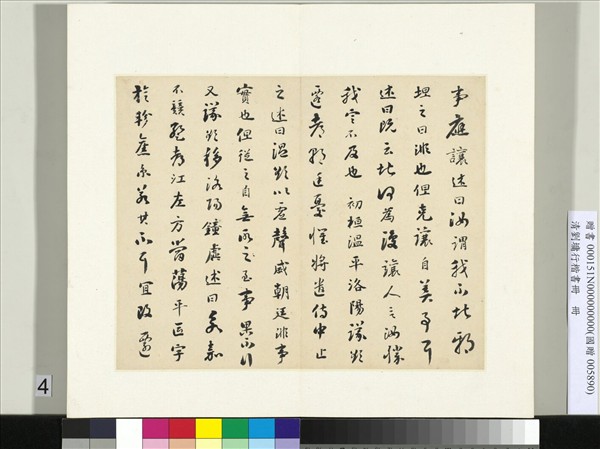 事應讓述曰汝謂我不堪邪
坦之曰非也但克讓自美事耳
述曰既云堪何為復讓人言汝勝
我定不及也初桓溫平洛陽議欲
遷都朝廷憂懼將遣侍中止
之述曰溫欲以虛聲威朝廷非事
實也但從之自無所至事果不行
又議欲移洛陽鐘虡述曰永嘉
不競暫都江左方當蕩平區宇
旋軫舊京若其不耳宜改遷
贈書 000151N000000000(國贈 005890)
清劉墉行楷書冊 冊
4